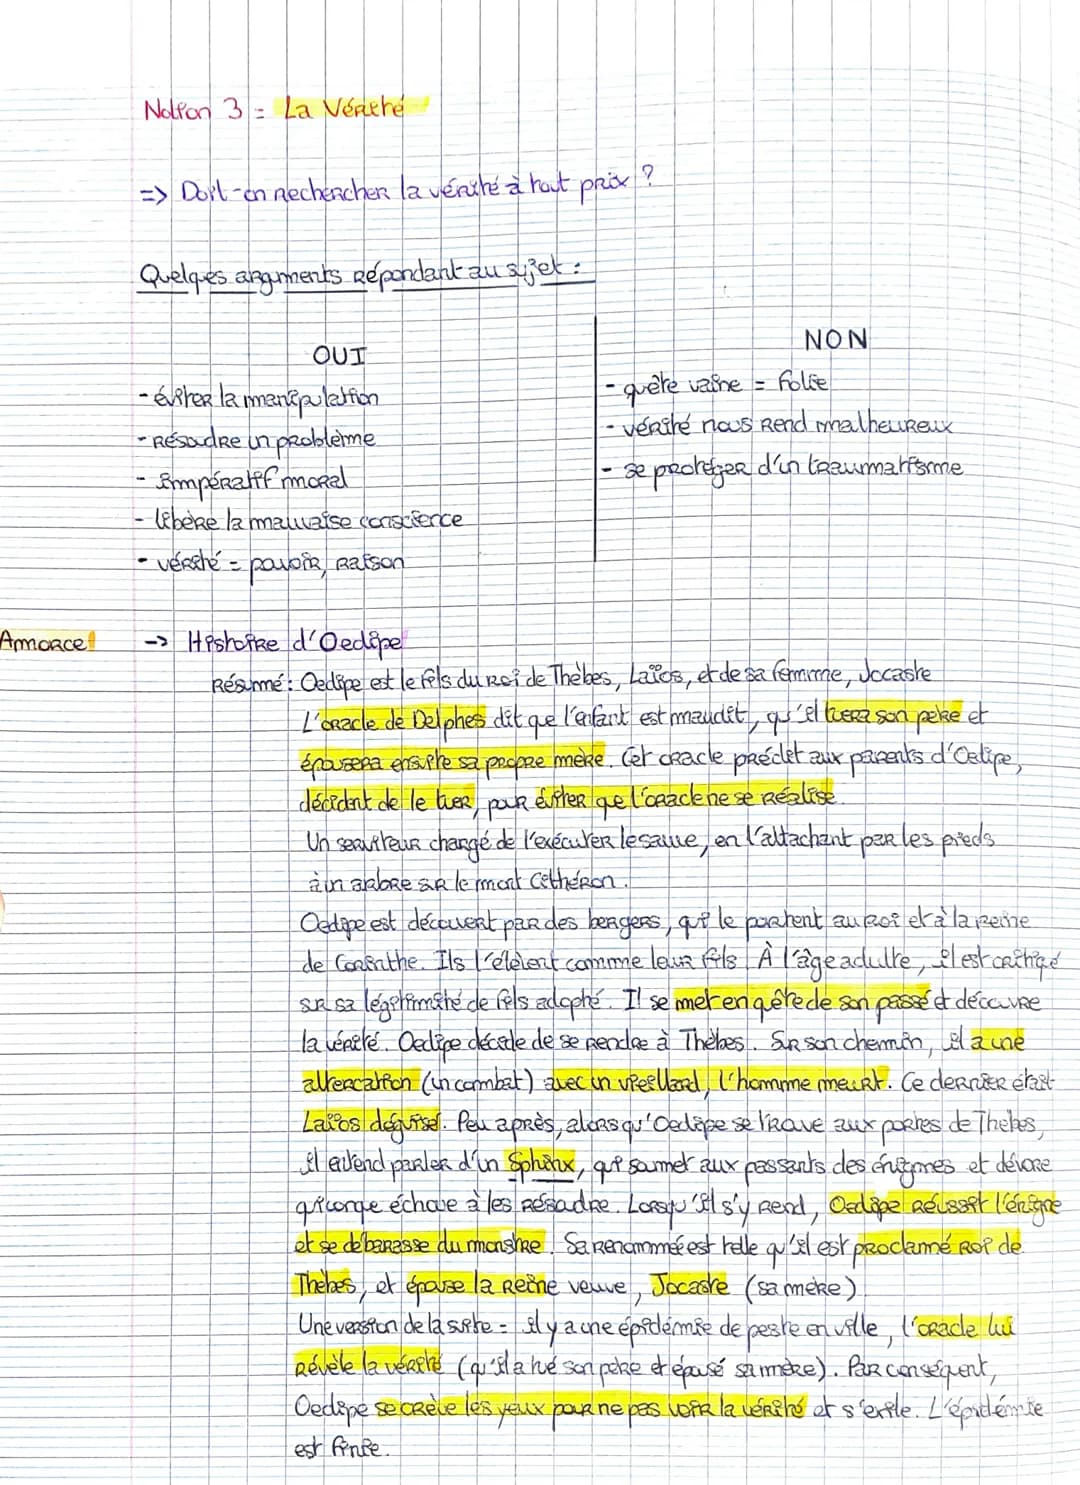 Notion 3 = La Vérité
=> Doit-on rechercher la vérité à tout prix ?
Quelques arguments répondant au sujet :
OUI
- éviter la manipulation
- résoudre un problème
- impératif moral
- libère la mauvaise conscience
- vérité = pouvoir, raison
NON
- quête vaine = folie
- vérité nous rend malheureux
- se protéger d'un traumatisme
Amorce !
-> Histoire d'Oedipe
Résumé : Oedipe est le fils du roi de Thèbes, Laïos, et de sa femme, Jocaste
L'oracle de Delphes dit que l'enfant est maudit, qu'il tuera son père et
épousera ensuite sa propre mère. Cet oracle prédit aux parents d'Oedipe,
décident de le tuer, pour éviter que l'oracle ne se réalise.
Un serviteur chargé de l'exécuter le sauve, en l'attachant par les pieds
à un arbre sur le mont Cithéron.
Oedipe est découvert par des bergers, qui le portent au roi et à la reine
de Corinthe. Ils l'élèvent comme leur fils. À l'âge adulte, il est critiqué
sur sa légitimité de fils adopté. Il se met en quête de son passé et découvre
la vérité. Oedipe décide de se rendre à Thèbes. Sur son chemin, il a une
altercation (un combat) avec un vieillard, l'homme meurt. Ce dernier était
Laïos déguisé. Peu après, alors qu'Oedipe se trouve aux portes de Thèbes,
il entend parler d'un Sphinx, qui soumet aux passants des énigmes et dévore
quiconque échoue à les résoudre. Lorsqu'il s'y rend, Oedipe réussit l'énigme
et se débarasse du monstre. Sa renommée est telle qu'il est proclamé roi de
Thèbes, et épouse la reine veuve, Jocaste (sa mère)
Une version de la suite = il y a une épidémie de peste en ville, l'oracle lui
révèle la vérité (qu'il a tué son père et épousé sa mère). Par conséquent,
Oedipe se crève les yeux pour ne pas voir la vérité et s'exile. L'épidémie
est finie.